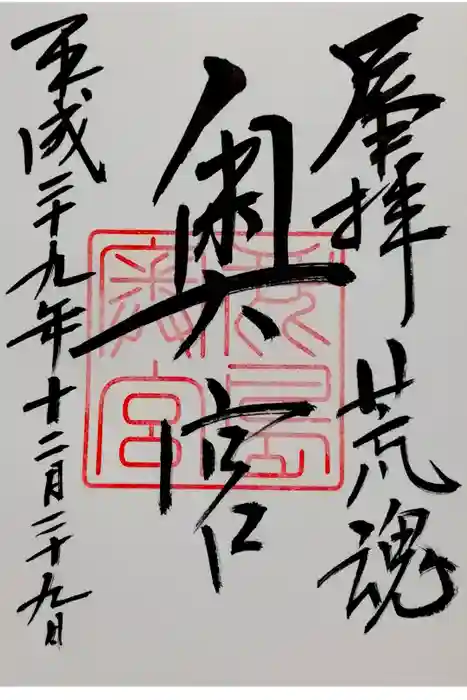 拝 荒魂
奥宮
平成二十九年十二月二十九日
奥宮